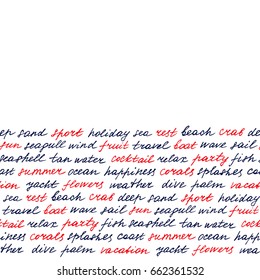 ep sand sport holiday sea rest beach crab de
sun seagull wind fruit travel boat wave sail
seashell tan water cocktail relax party fish
ast summer ocean happiness corals splashes coast
ion yacht flowers weather dive palm vacat
sea rest beach crab deep sand sport holiday
travel boat wave sail sun seagull wind fruit
cocktail relax party fish seashell tan water
iness corals splashes coast summer ocean
dive palm vacation yacht flowers weather
www.shutterstock.com · 662361532